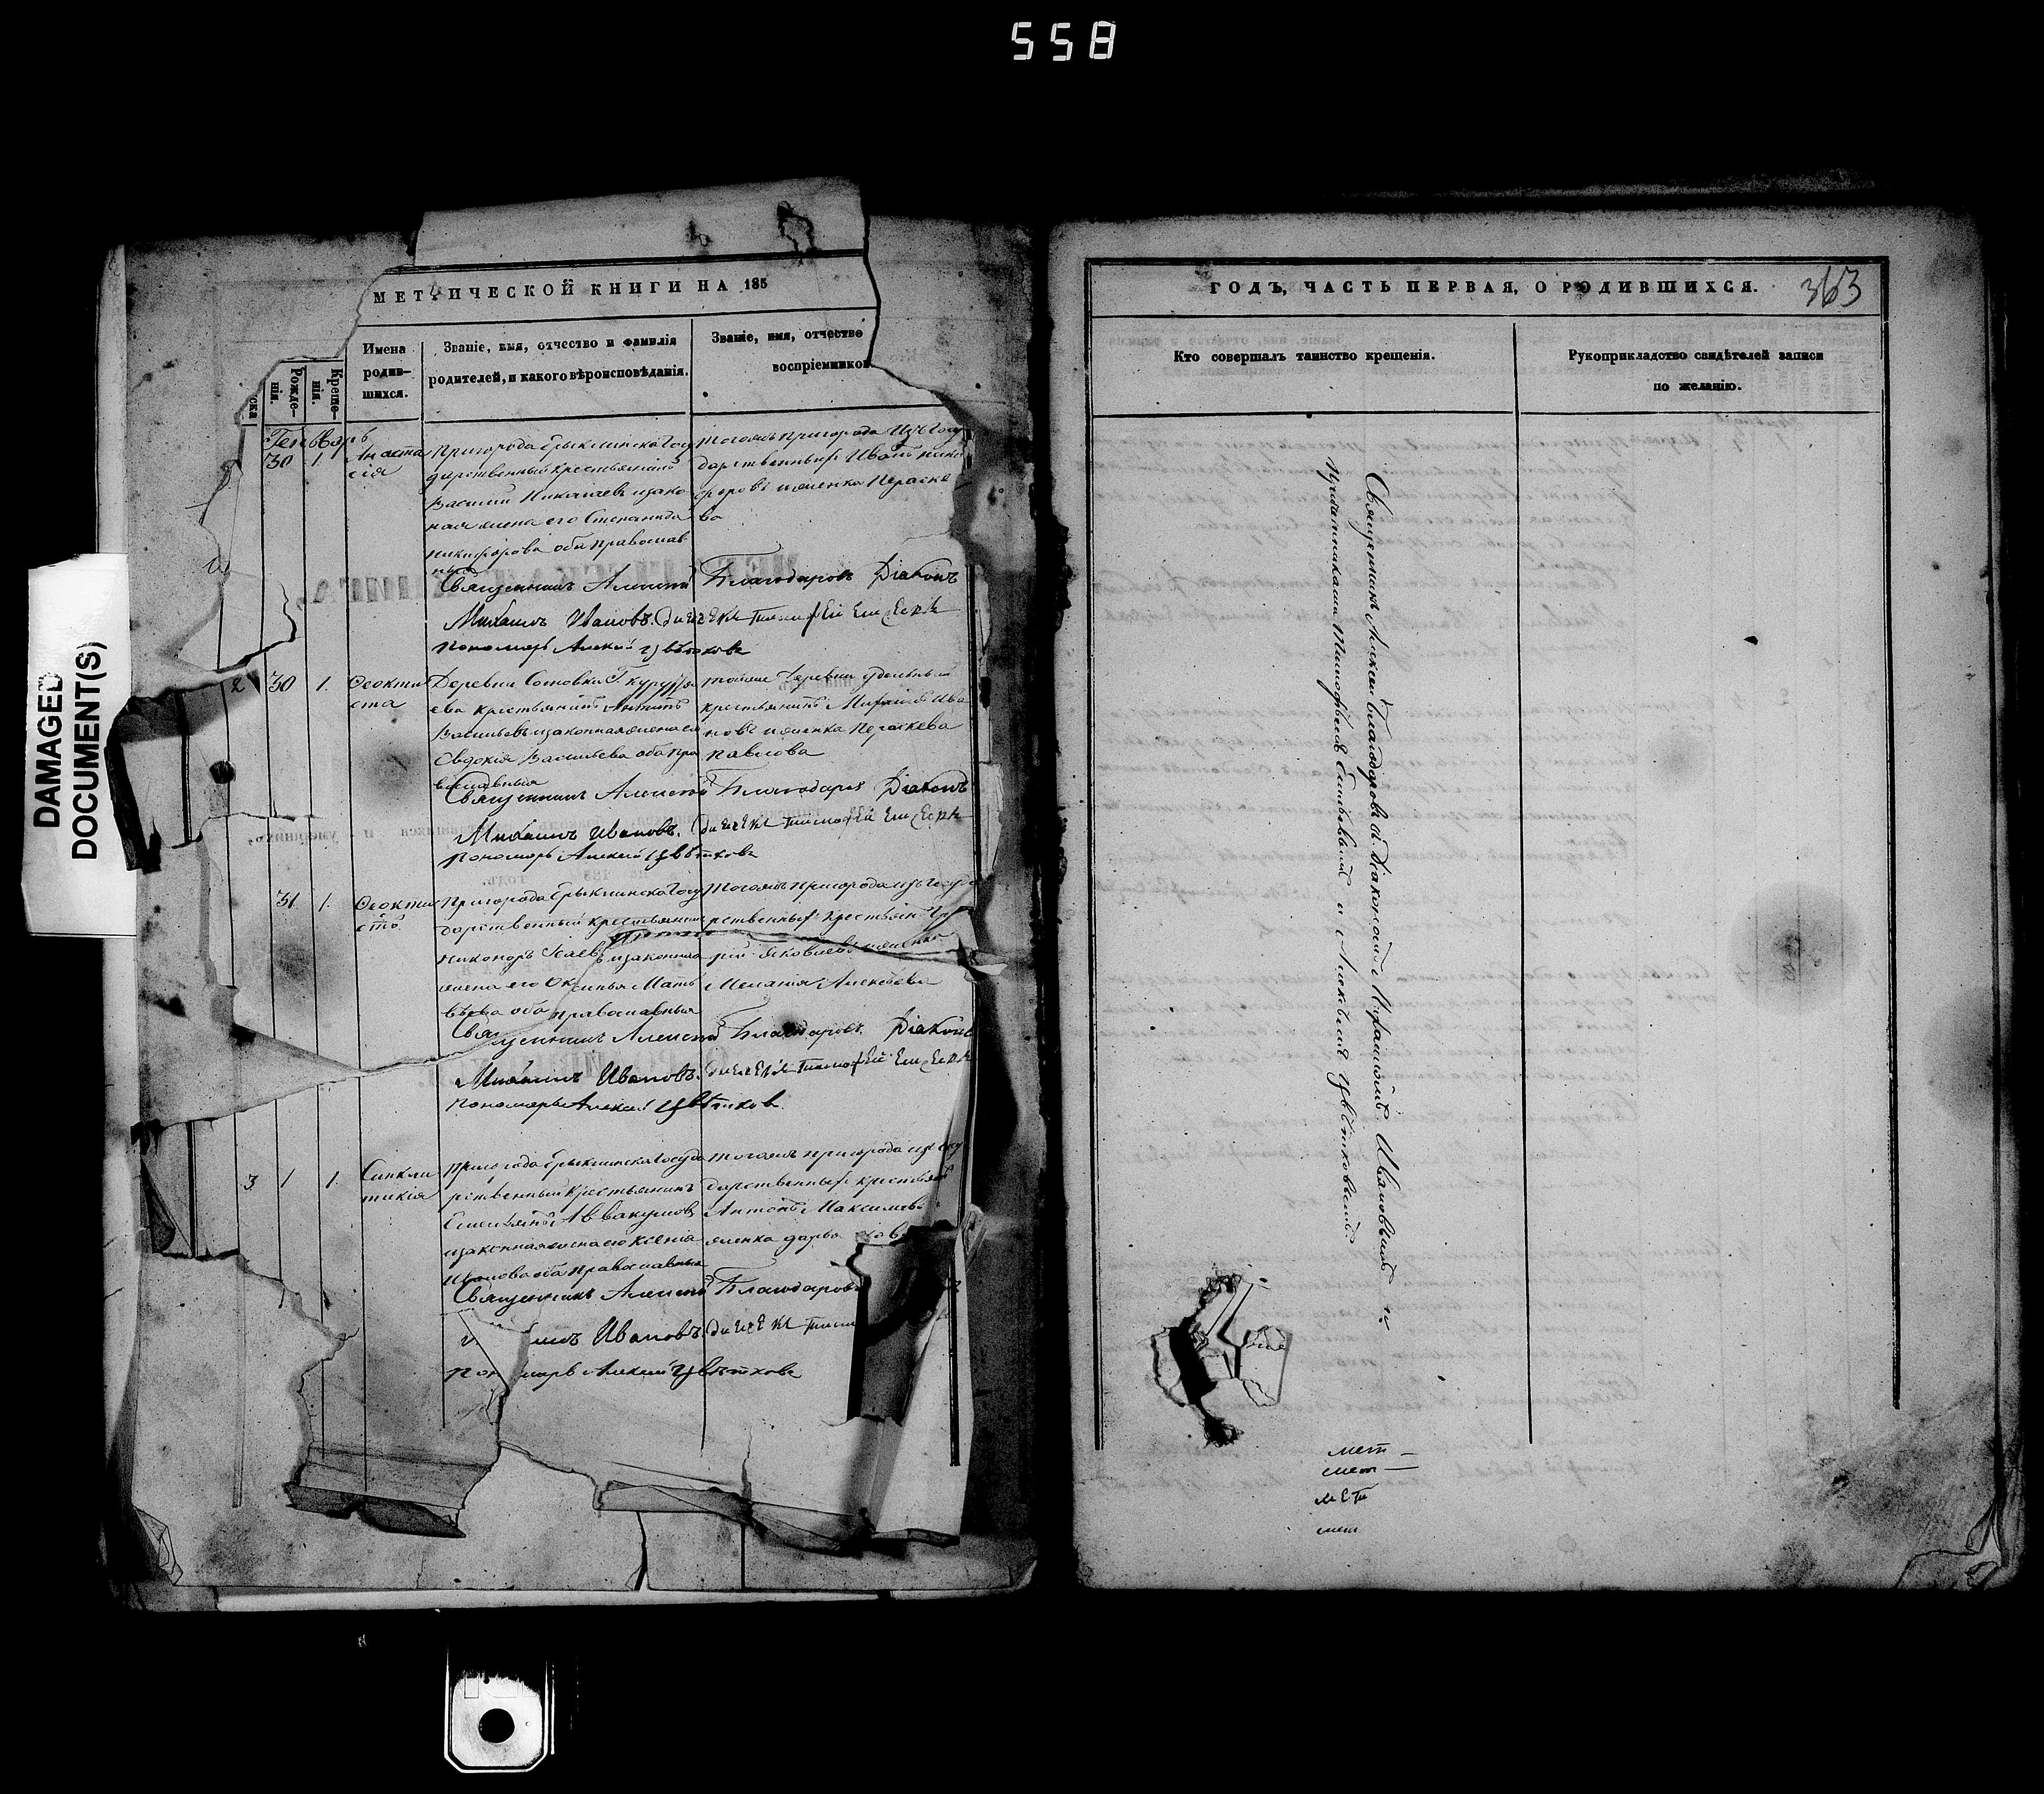 558
DAMAGED
DOCUMENT(S)
МЕТРИЧЕСКОЙ КНИГИ НА 185
Рожде-
нія.
Креще-
нія.
Имена
родив-
шихся.
Званіе, имя, отчество и фамилія
родителей, и какого вѣроисповѣданія.
Званіе, имя, отчество
воспріемников
Генварь
30 1. Анаста
сія
Пригорода Ерыклинска Госу
дарственный крестьянинъ
Василий законная жена его Степанида
Никифорова оба православ
ныя
Тогожъ пригорода изъ Госу
дарственныхъ Иванъ Ники
форовъ и женка Параске
ва
Священникъ Алексей Благодаровъ Діаконъ
Михаилъ Ивановъ. дьячекъ Тимофей
пономарь Алексей Цвѣтковъ
2 30 1. Ѳеокти
ста
Деревни
крестьянинъ Антипъ
Васильевъ и законная жена его
Евдокия Васильева оба пра
вославныя
тойже деревни удельный
крестьянинъ Михайло Ива
новъ и женка Параскева
Павлова
Священникъ Алексей Благодаровъ Діаконъ
Михаилъ Ивановъ. дьячекъ Тимофей
пономарь Алексей Цвѣтковъ
31 1. Ѳеокти
стъ
Пригорода Ерыклинска Госу
дарственный крестьянинъ
Никоноръ и законная
жена его Оксинья Мать
вѣева оба православныя
Тогожъ пригорода изъ Госуда
рственныхъ крестьянъ Гри
горій Яковлевъ и женка
Мелания Алексѣева
Священникъ Алексей Благодаровъ. Діаконъ
Михаилъ Ивановъ. дьячекъ Тимофей
пономарь Алексей Цвѣтковъ.
3 1 1. Синкли
тикія
Пригорода Ерыклинска Госуда
рственный крестьянинъ
Емельянъ Аввакумовъ
и законная жена его Ксения
Иванова оба православныя
Тогожъ пригорода изъ Госу
дарственныхъ крестьянъ
Антонъ Максимовъ
женка Дарья
Священникъ Алексей Благодаровъ
Ивановъ. дьячекъ
пономарь Алексей Цвѣтковъ
ГОДЪ, ЧАСТЬ ПЕРВАЯ, О РОДИВШИХСЯ.
363
Кто совершалъ таинство крещенія.
Рукоприкладство свидѣтелей записи
по желанію.
Священникъ Алексей Благодаровъ съ Діакономъ Михаиломъ Ивановымъ и
причетниками Тимофеемъ и Алексеемъ Цвѣтковымъ.
мет
мет
мет
мет